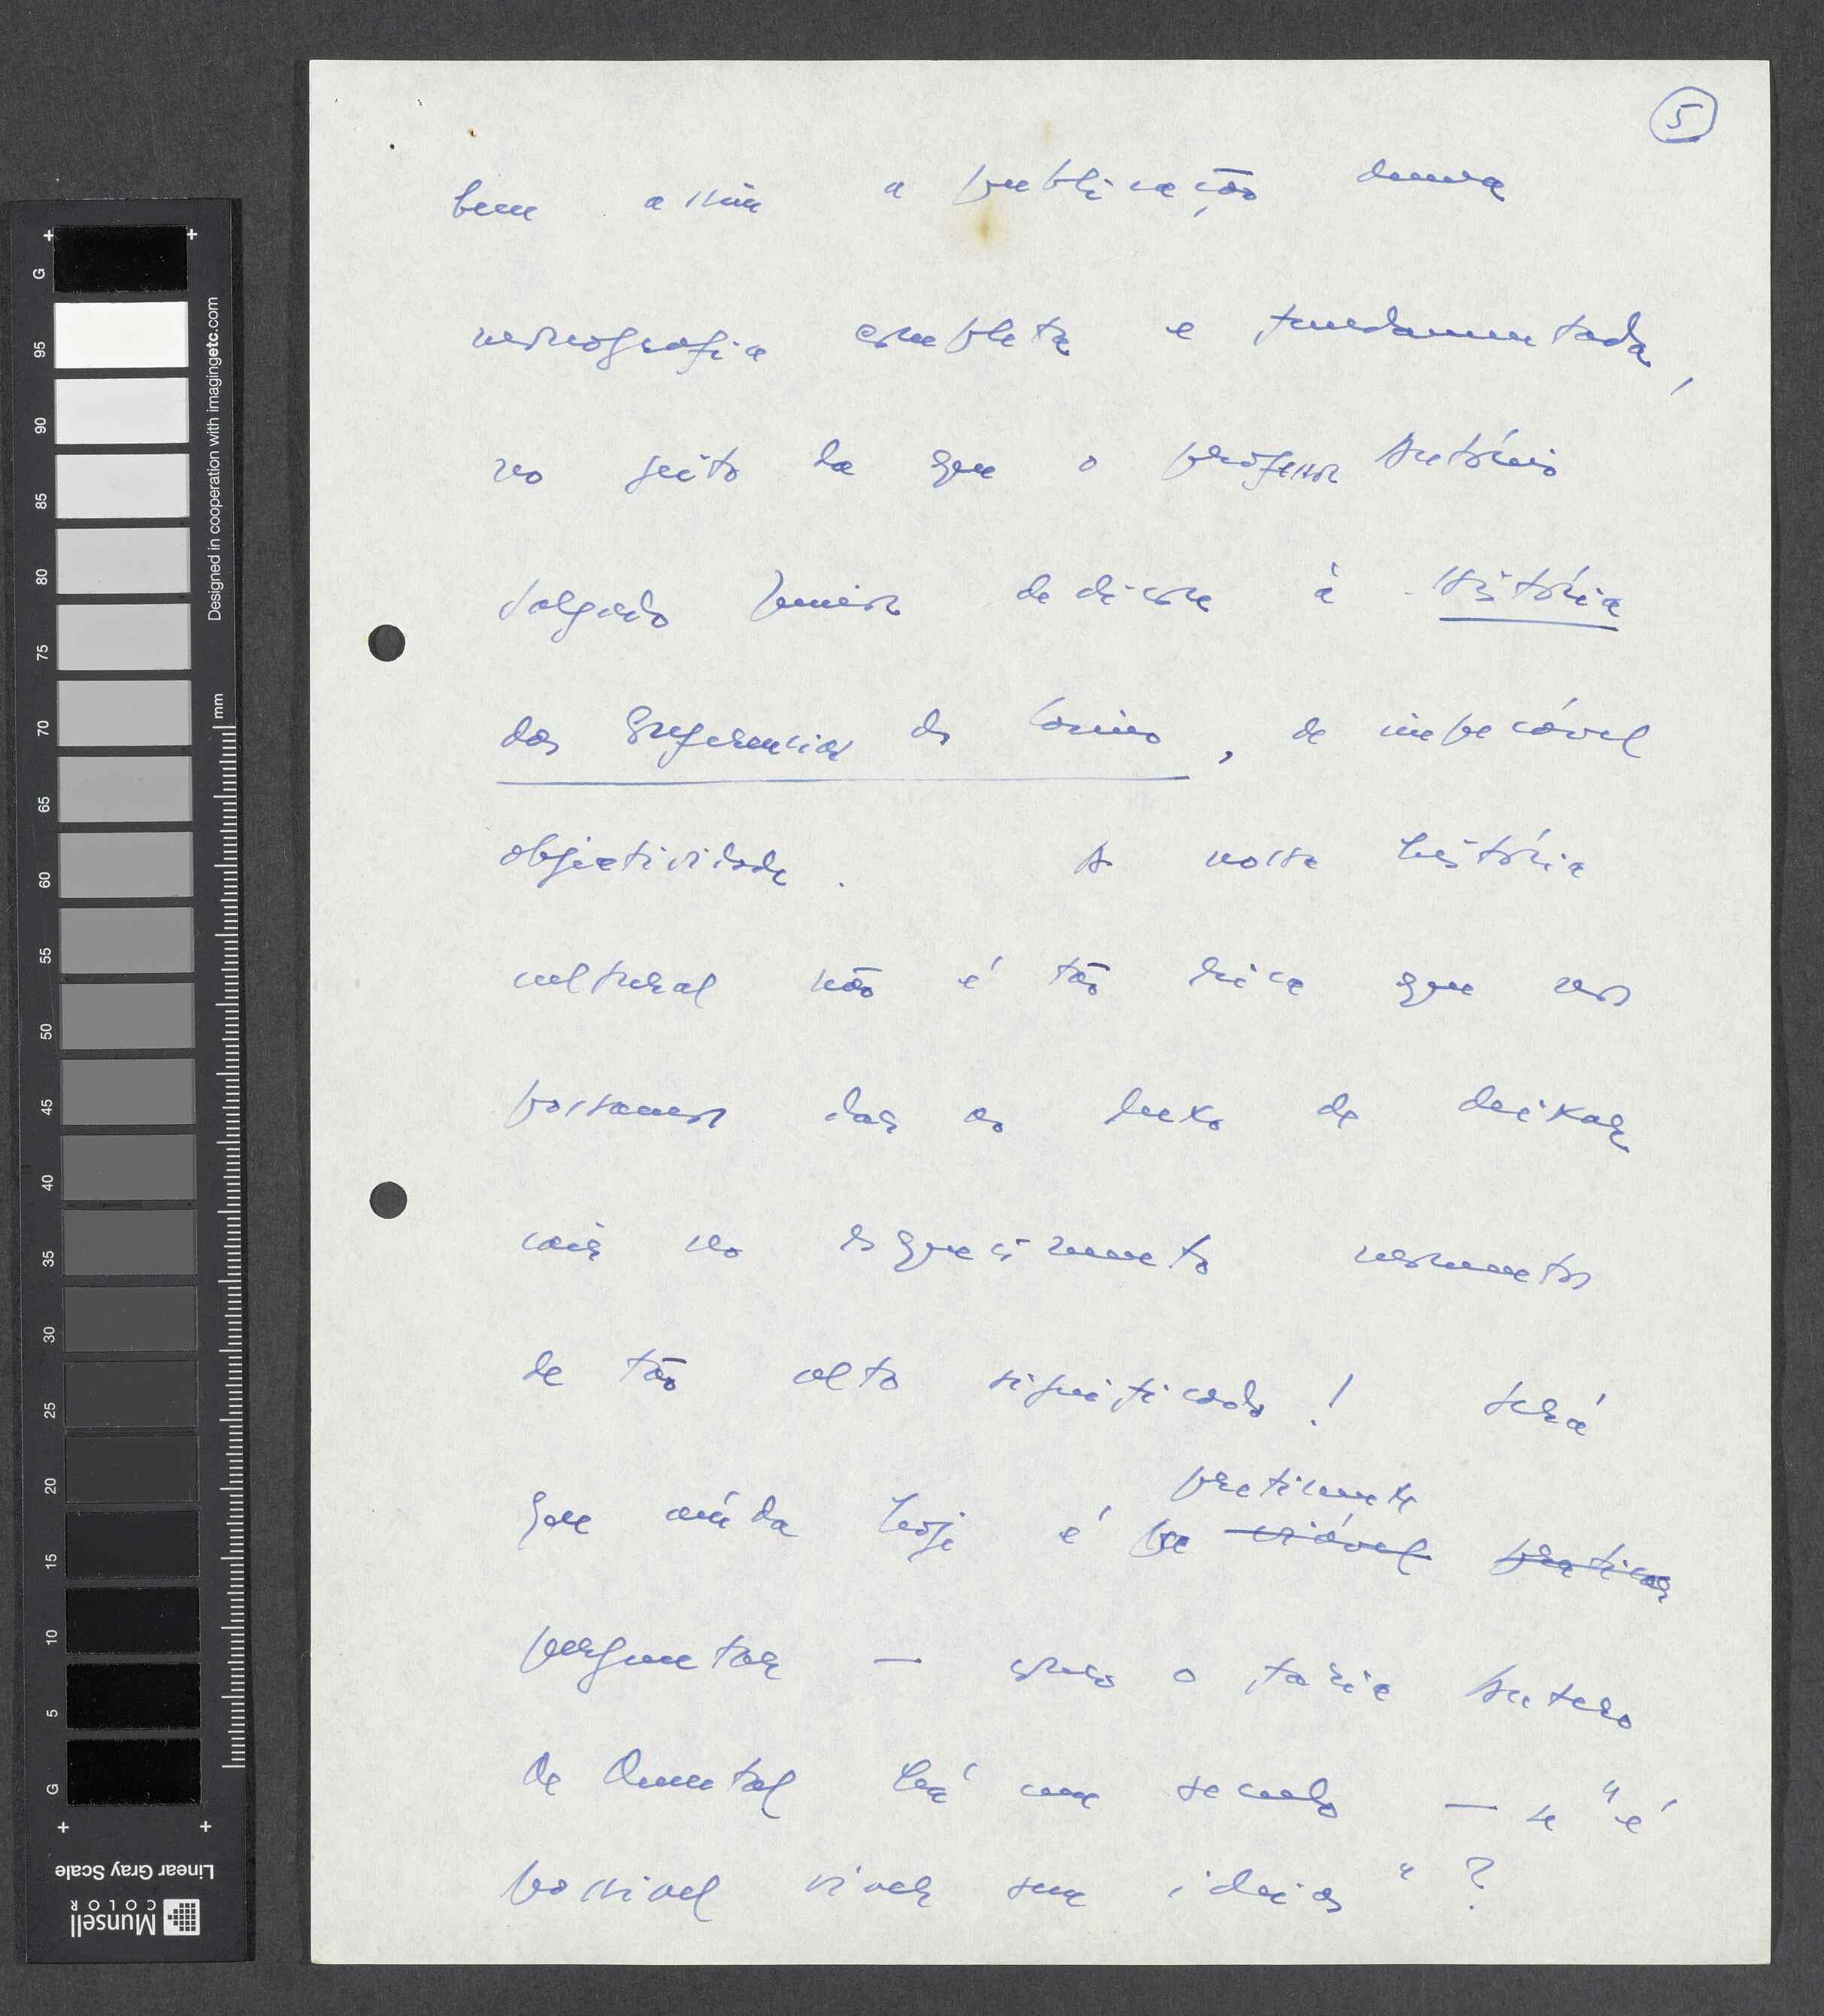 5
bem assim a publicação duma
monografia completa e fundamentada,
no jeito da que o professor António
Salgado Júnior dedicou à História
das Conferencias do Casino, de impecável
objectividade. A nossa história
cultural não é tão rica que nos
possamos dar ao luxo de deixar
cair no esquecimento momentos
de tão alto significado! Será
que ainda hoje é
praticamente
viável praticar
perguntar — como o faria Antero
de Quental há um seculo — se "é
possivel viver sem ideias"?
G
95
90
85
80
75
70
65
60
55
50
45
40
35
30
25
20
15
10
5
G
mm
Designed in cooperation with imagingetc.com
Linear Gray Scale
Munsell
COLOR